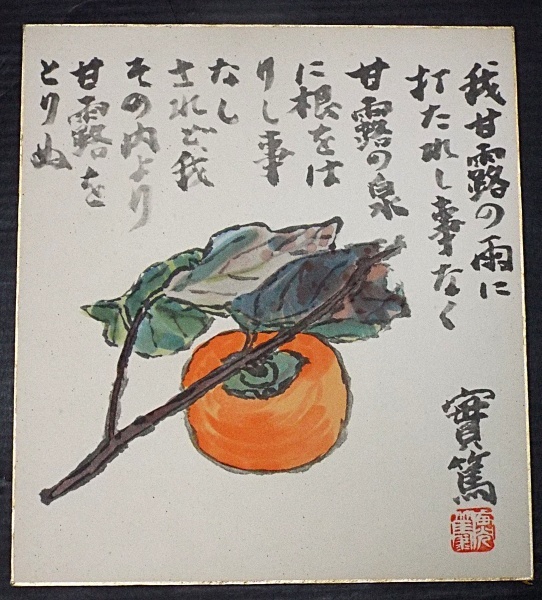 我甘露の雨に
打たれし事なく
甘露の泉
に根をは
りし事
なし
されど我
その内より
甘露を
とりぬ
實篤